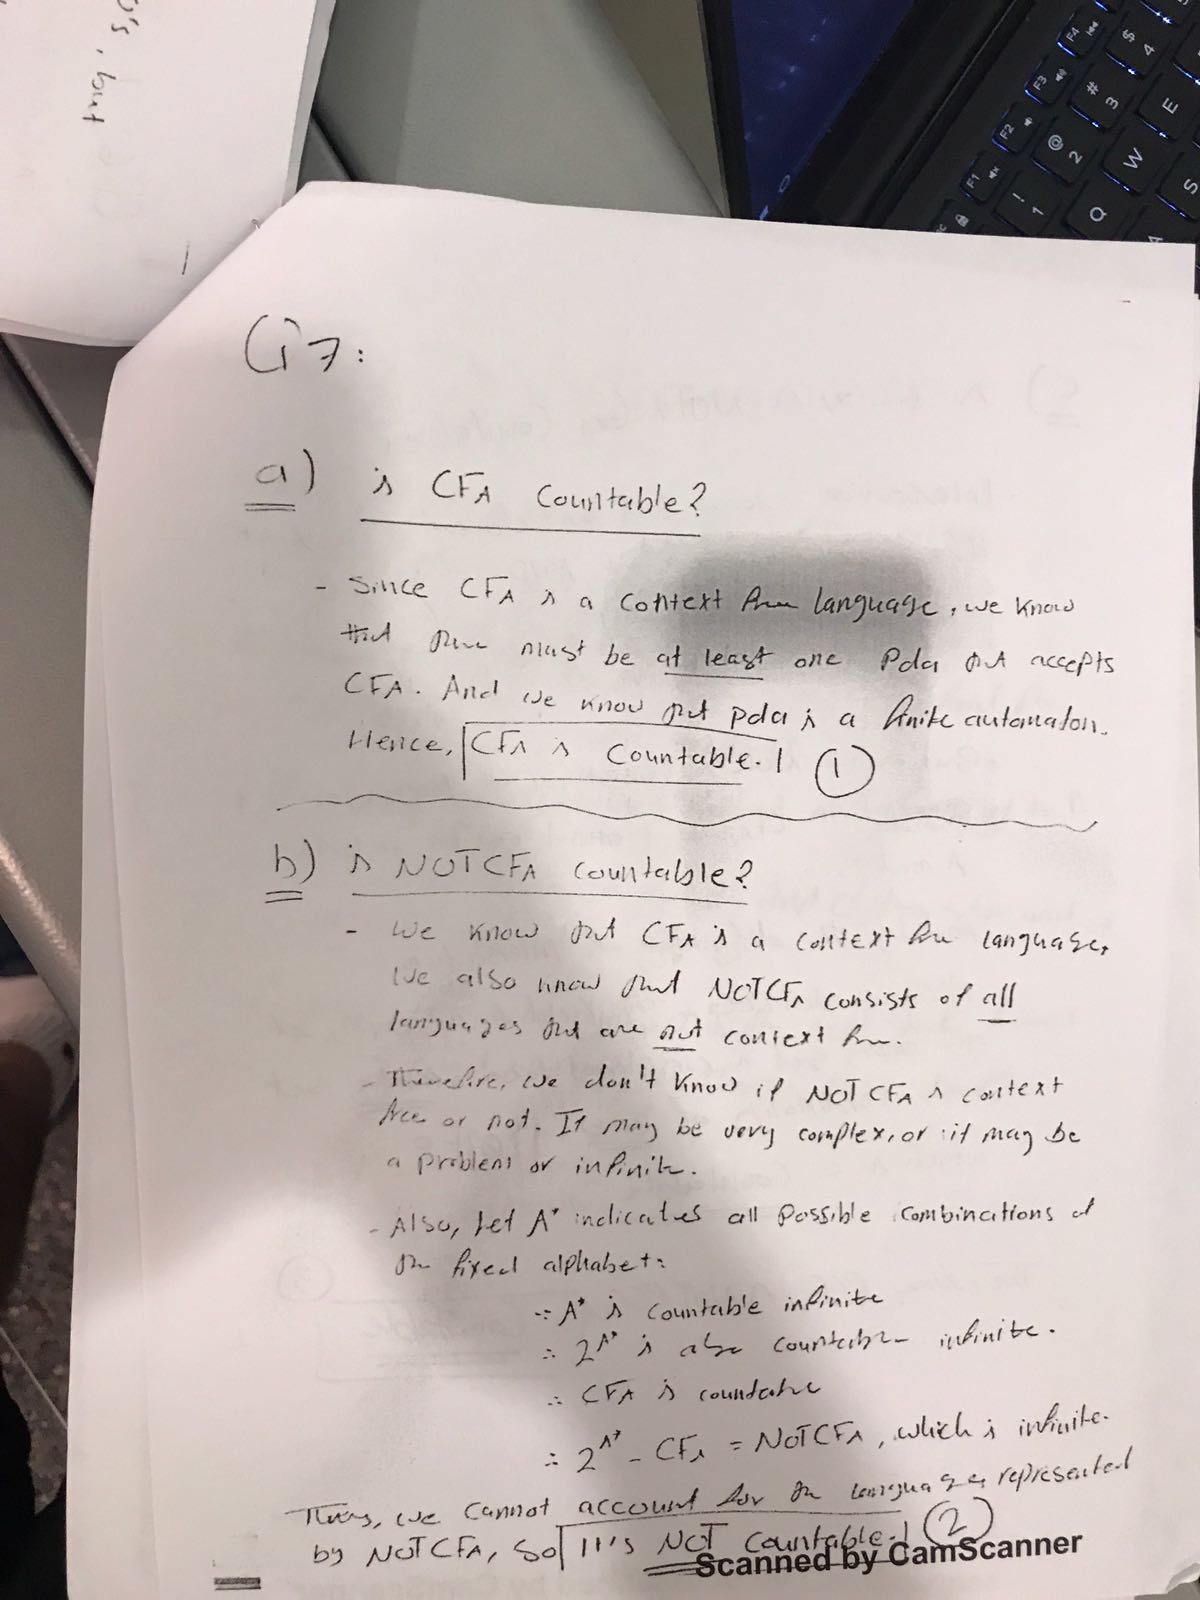 0's, but
F4
$
4
F3
#
3
E
F2
@
2
W
S
F1
!
1
Q
A
Q7:
a) is CFA Countable?
- Since CFA is a context free language, we know
that there must be at least one Pda that accepts
CFA. And we know that pda is a finite automaton.
Hence, CFA is Countable. 1
b) is NOTCFA countable?
- We know that CFA is a context free language,
We also know that NOTCFA consists of all
languages that are not context free.
- Therefore, we don't know if NOTCFA is context
free or not. It may be very complex, or it may be
a problem or infinite.
- Also, Let A* indicates all Possible Combinations of
the fixed alphabet:
∵ A* is countable infinite
∴ 2^A* is also countable infinite.
∴ CFA is countable
∴ 2^A* - CFA = NOTCFA, which is infinite.
Thus, we cannot account for the languages represented
by NOTCFA, So It's NOT Countable. 2
Scanned by CamScanner